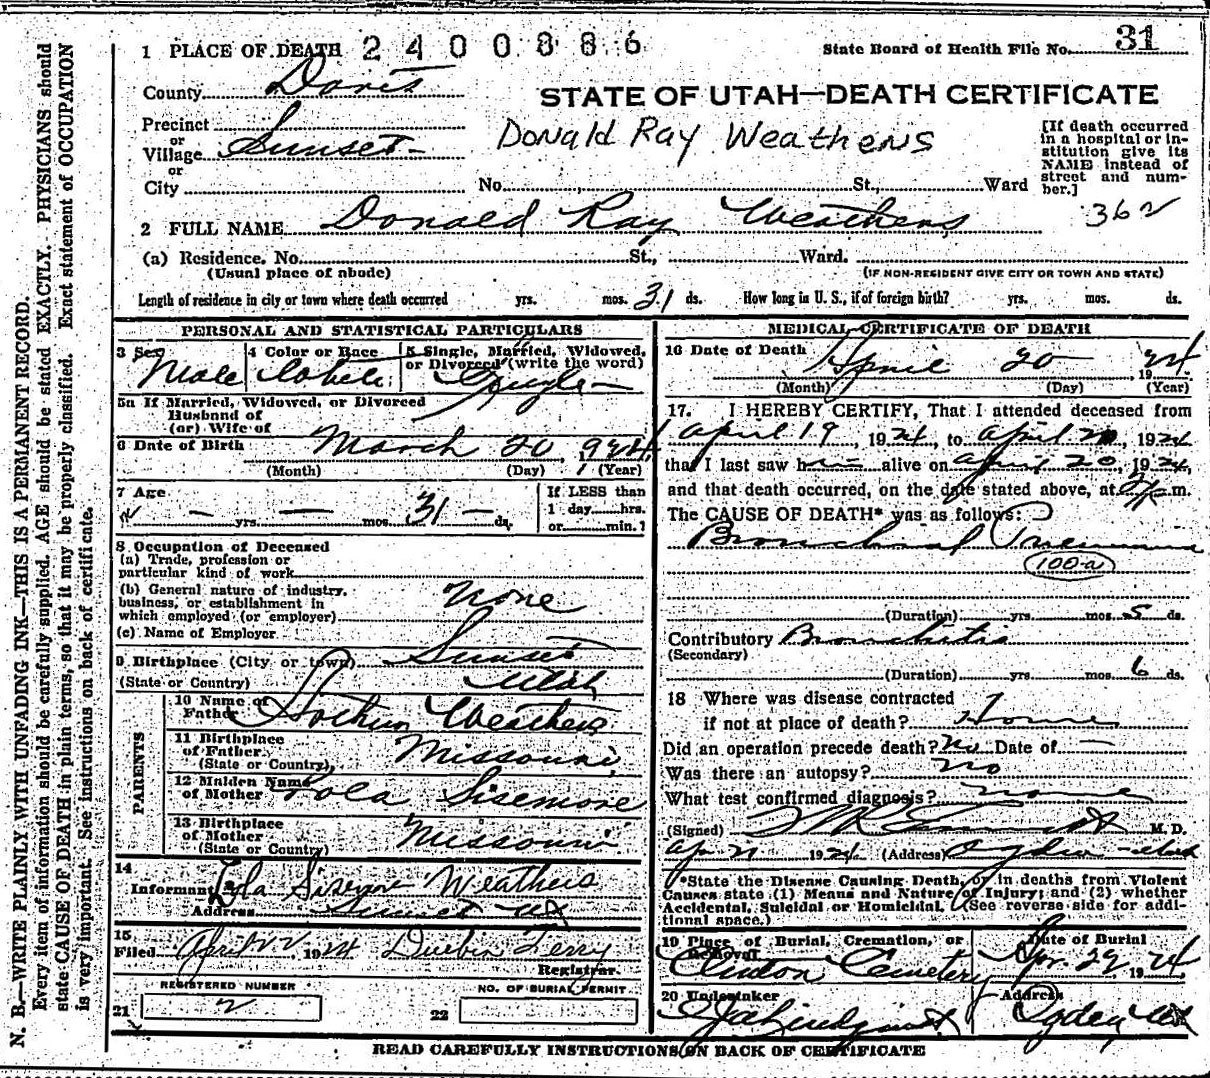 N. B.—WRITE PLAINLY WITH UNFADING INK—THIS IS A PERMANENT RECORD.
Every item of information should be carefully supplied. AGE should be stated EXACTLY. PHYSICIANS should
state CAUSE OF DEATH in plain terms, so that it may be properly classified. Exact statement of OCCUPATION
is very important. See instructions on back of certificate.
1 PLACE OF DEATH 2400886
State Board of Health File No. 31
County Davis
STATE OF UTAH—DEATH CERTIFICATE
Precinct
or
Village Sunset
or
City
Donald Ray Weathers
[If death occurred
in a hospital or in-
stitution give its
NAME instead of
street and num-
ber.]
No. St., Ward
362
2 FULL NAME Donald Ray Weathers
(a) Residence. No. St., Ward.
(Usual place of abode) (IF NON-RESIDENT GIVE CITY OR TOWN AND STATE)
Length of residence in city or town where death occurred yrs. mos. 31 ds. How long in U. S., if of foreign birth? yrs. mos. ds.
PERSONAL AND STATISTICAL PARTICULARS
3 Sex Male
4 Color or Race White
5 Single, Married, Widowed,
or Divorced (write the word)
Single
5a If Married, Widowed, or Divorced
Husband of
(or) Wife of
6 Date of Birth March 20, 1924
(Month) (Day) (Year)
7 Age — yrs. — mos. 31 ds.
If LESS than
1 day hrs.
or min.?
8 Occupation of Deceased
(a) Trade, profession or
particular kind of work
(b) General nature of industry,
business, or establishment in
which employed (or employer) None
(c) Name of Employer
9 Birthplace (City or town) Sunset
(State or Country) Utah
PARENTS
10 Name of
Father Weathers
11 Birthplace
of Father
(State or Country) Missouri
12 Maiden Name
of Mother Lola Sisemore
13 Birthplace
of Mother
(State or Country) Missouri
14
Informant Lola Sisemore Weathers
Address Sunset Ut
15
Filed April 22, 1924 Durbin Terry
Registrar.
REGISTERED NUMBER
21 2
NO. OF BURIAL PERMIT
22
MEDICAL CERTIFICATE OF DEATH
16 Date of Death April 20 1924
(Month) (Day) (Year)
17. I HEREBY CERTIFY, That I attended deceased from
April 19, 1924, to April 20, 1924
that I last saw him alive on April 20, 1924,
and that death occurred, on the date stated above, at 2 p.m.
The CAUSE OF DEATH* was as follows:
Bronchial Pneumonia
100-a
(Duration) yrs. mos. 5 ds.
Contributory Bronchitis
(Secondary)
(Duration) yrs. mos. 6 ds.
18 Where was disease contracted
if not at place of death? Home
Did an operation precede death? No Date of —
Was there an autopsy? No
What test confirmed diagnosis? none
(Signed) M. D.
Apr 21 1924 (Address) Ogden Utah
*State the Disease Causing Death, or in deaths from Violent
Causes state (1) Means and Nature of Injury; and (2) whether
Accidental, Suicidal or Homicidal. (See reverse side for addi-
tional space.)
19 Place of Burial, Cremation, or
Removal
Clinton Cemetery
Date of Burial
Apr. 22 1924
20 Undertaker
Address
Ogden Ut
READ CAREFULLY INSTRUCTIONS ON BACK OF CERTIFICATE